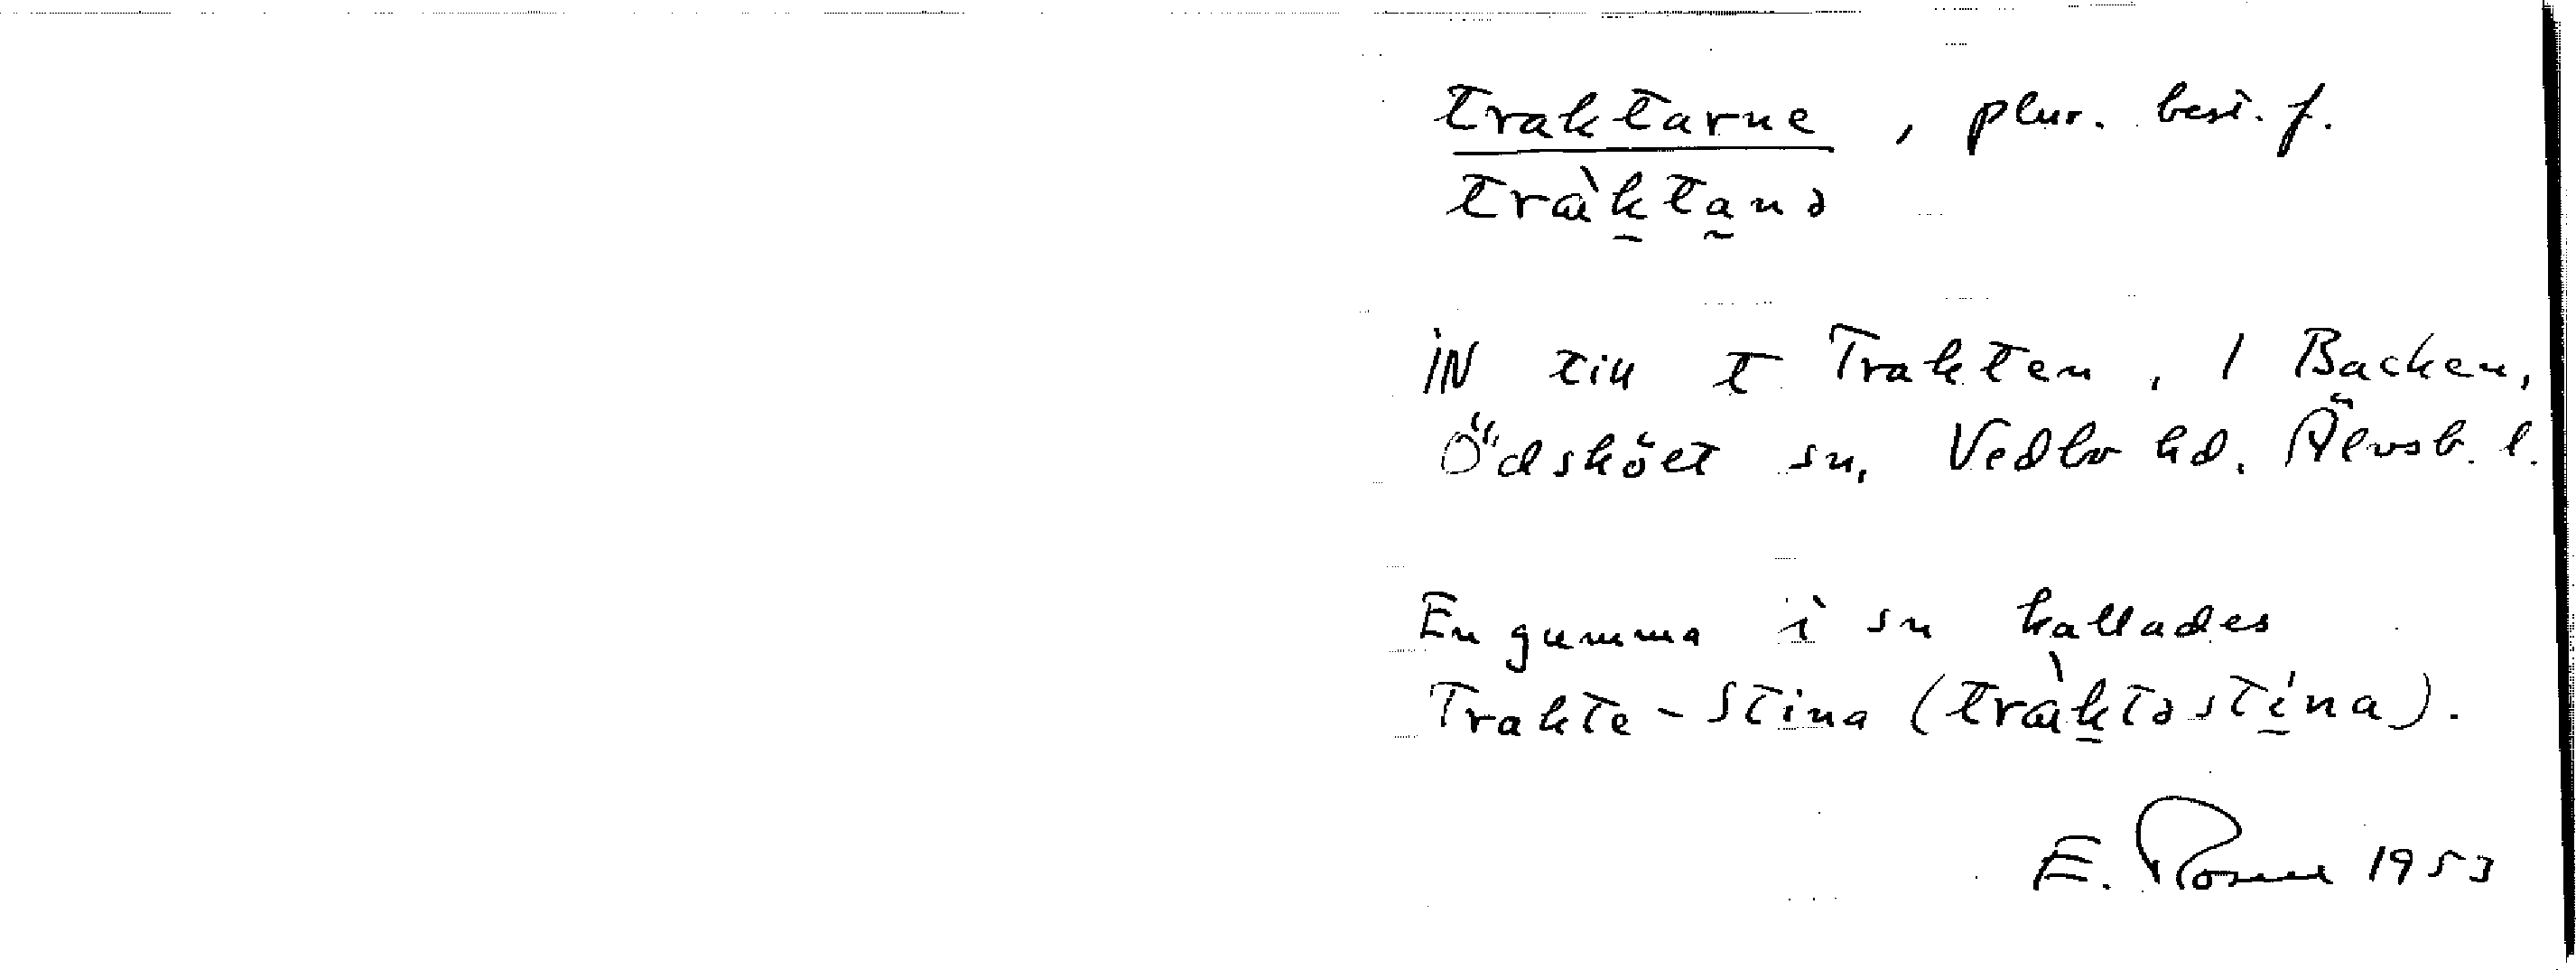 traktarne, plur. best. f.
tràktanə
iN till t Trakten, 1 Backen,
Ödsköet sn, Vedbo hd. Älvsb. l.
En gumma i sn kallades
Trakte-Stina (tràktəstína).
E. Rosell 1953